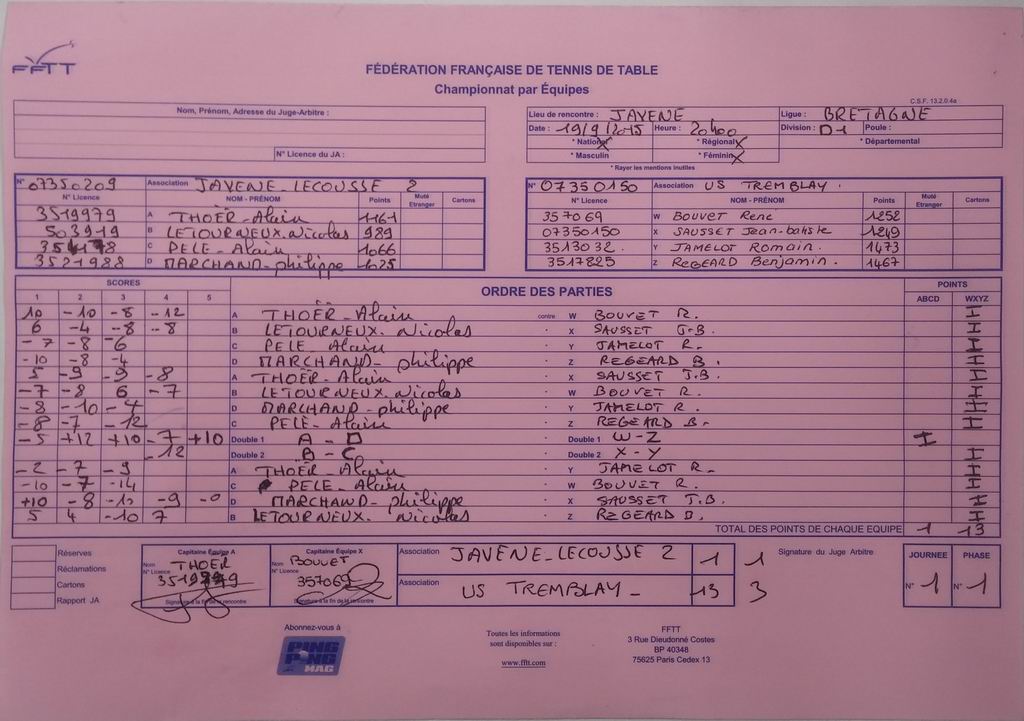 FFTT
FÉDÉRATION FRANÇAISE DE TENNIS DE TABLE
Championnat par Équipes
C.S.F. 13.2.0.4a
Nom, Prénom, Adresse du Juge-Arbitre :
N° Licence du JA :
Lieu de rencontre : JAVENE Ligue : BRETAGNE
Date : 19/9/2015 Heure : 20h00 Division : D1 Poule :
* National * Régional * Départemental
* Masculin * Féminin
* Rayer les mentions inutiles
N° 07350209 Association JAVENE-LECOUSSE 2
N° Licence NOM - PRÉNOM Points Muté Etranger Cartons
3519979 A THOËR-Alain 1161
503919 B LETOURNEUX.Nicolas 989
C PELE-Alain 1066
3521988 D MARCHAND-philippe
N° 07350150 Association US TREMBLAY.
N° Licence NOM - PRÉNOM Points Muté Etranger Cartons
357069 W BOUVET René 1252
07350150 X SAUSSET Jean-batiste 1249
3513032. Y JAMELOT Romain. 1473
3517825 Z REGEARD Benjamin. 1467
SCORES ORDRE DES PARTIES POINTS
1 2 3 4 5 ABCD WXYZ
10 -10 -8 -12 A THOËR-Alain contre W BOUVET R. H
6 -4 -8 -8 B LETOURNEUX.Nicolas X SAUSSET J-B. H
-7 -8 -6 C PELE-Alain Y JAMELOT R. H
-10 -8 -4 D MARCHAND-philippe Z REGEARD B. H
5 -9 -9 -8 A THOËR-Alain X SAUSSET J.B. H
-7 -8 6 -7 B LETOURNEUX.Nicolas W BOUVET R. H
-8 -10 -4 D MARCHAND-philippe Y JAMELOT R. H
-8 -7 -12 C PELE-Alain Z REGEARD B. H
-5 +12 +10 -7 +10 Double 1 A-D Double 1 W-Z I
-12 Double 2 B-C Double 2 X-Y H
-2 -7 -9 A THOËR-Alain Y JAMELOT R. H
-10 -7 -14 C PELE-Alain W BOUVET R. H
+10 -8 -12 -9 -0 D MARCHAND-philippe X SAUSSET J.B. H
5 4 -10 7 B LETOURNEUX. Nicolas Z REGEARD B. H
TOTAL DES POINTS DE CHAQUE EQUIPE 1 13
Réserves
Réclamations
Cartons
Rapport JA
Capitaine Équipe A
Nom THOER
N° Licence
Signature à la fin de la rencontre
Capitaine Équipe X
Nom BOUVET
N° Licence 357069
Signature à la fin de la rencontre
Association JAVENE-LECOUSSE 2 1 1
Association US TREMBLAY- 13 3
Signature du Juge Arbitre
JOURNEE PHASE
N° 1 N° 1
Abonnez-vous à
PING PONG MAG
Toutes les informations
sont disponibles sur :
www.fftt.com
FFTT
3 Rue Dieudonné Costes
BP 40348
75625 Paris Cedex 13